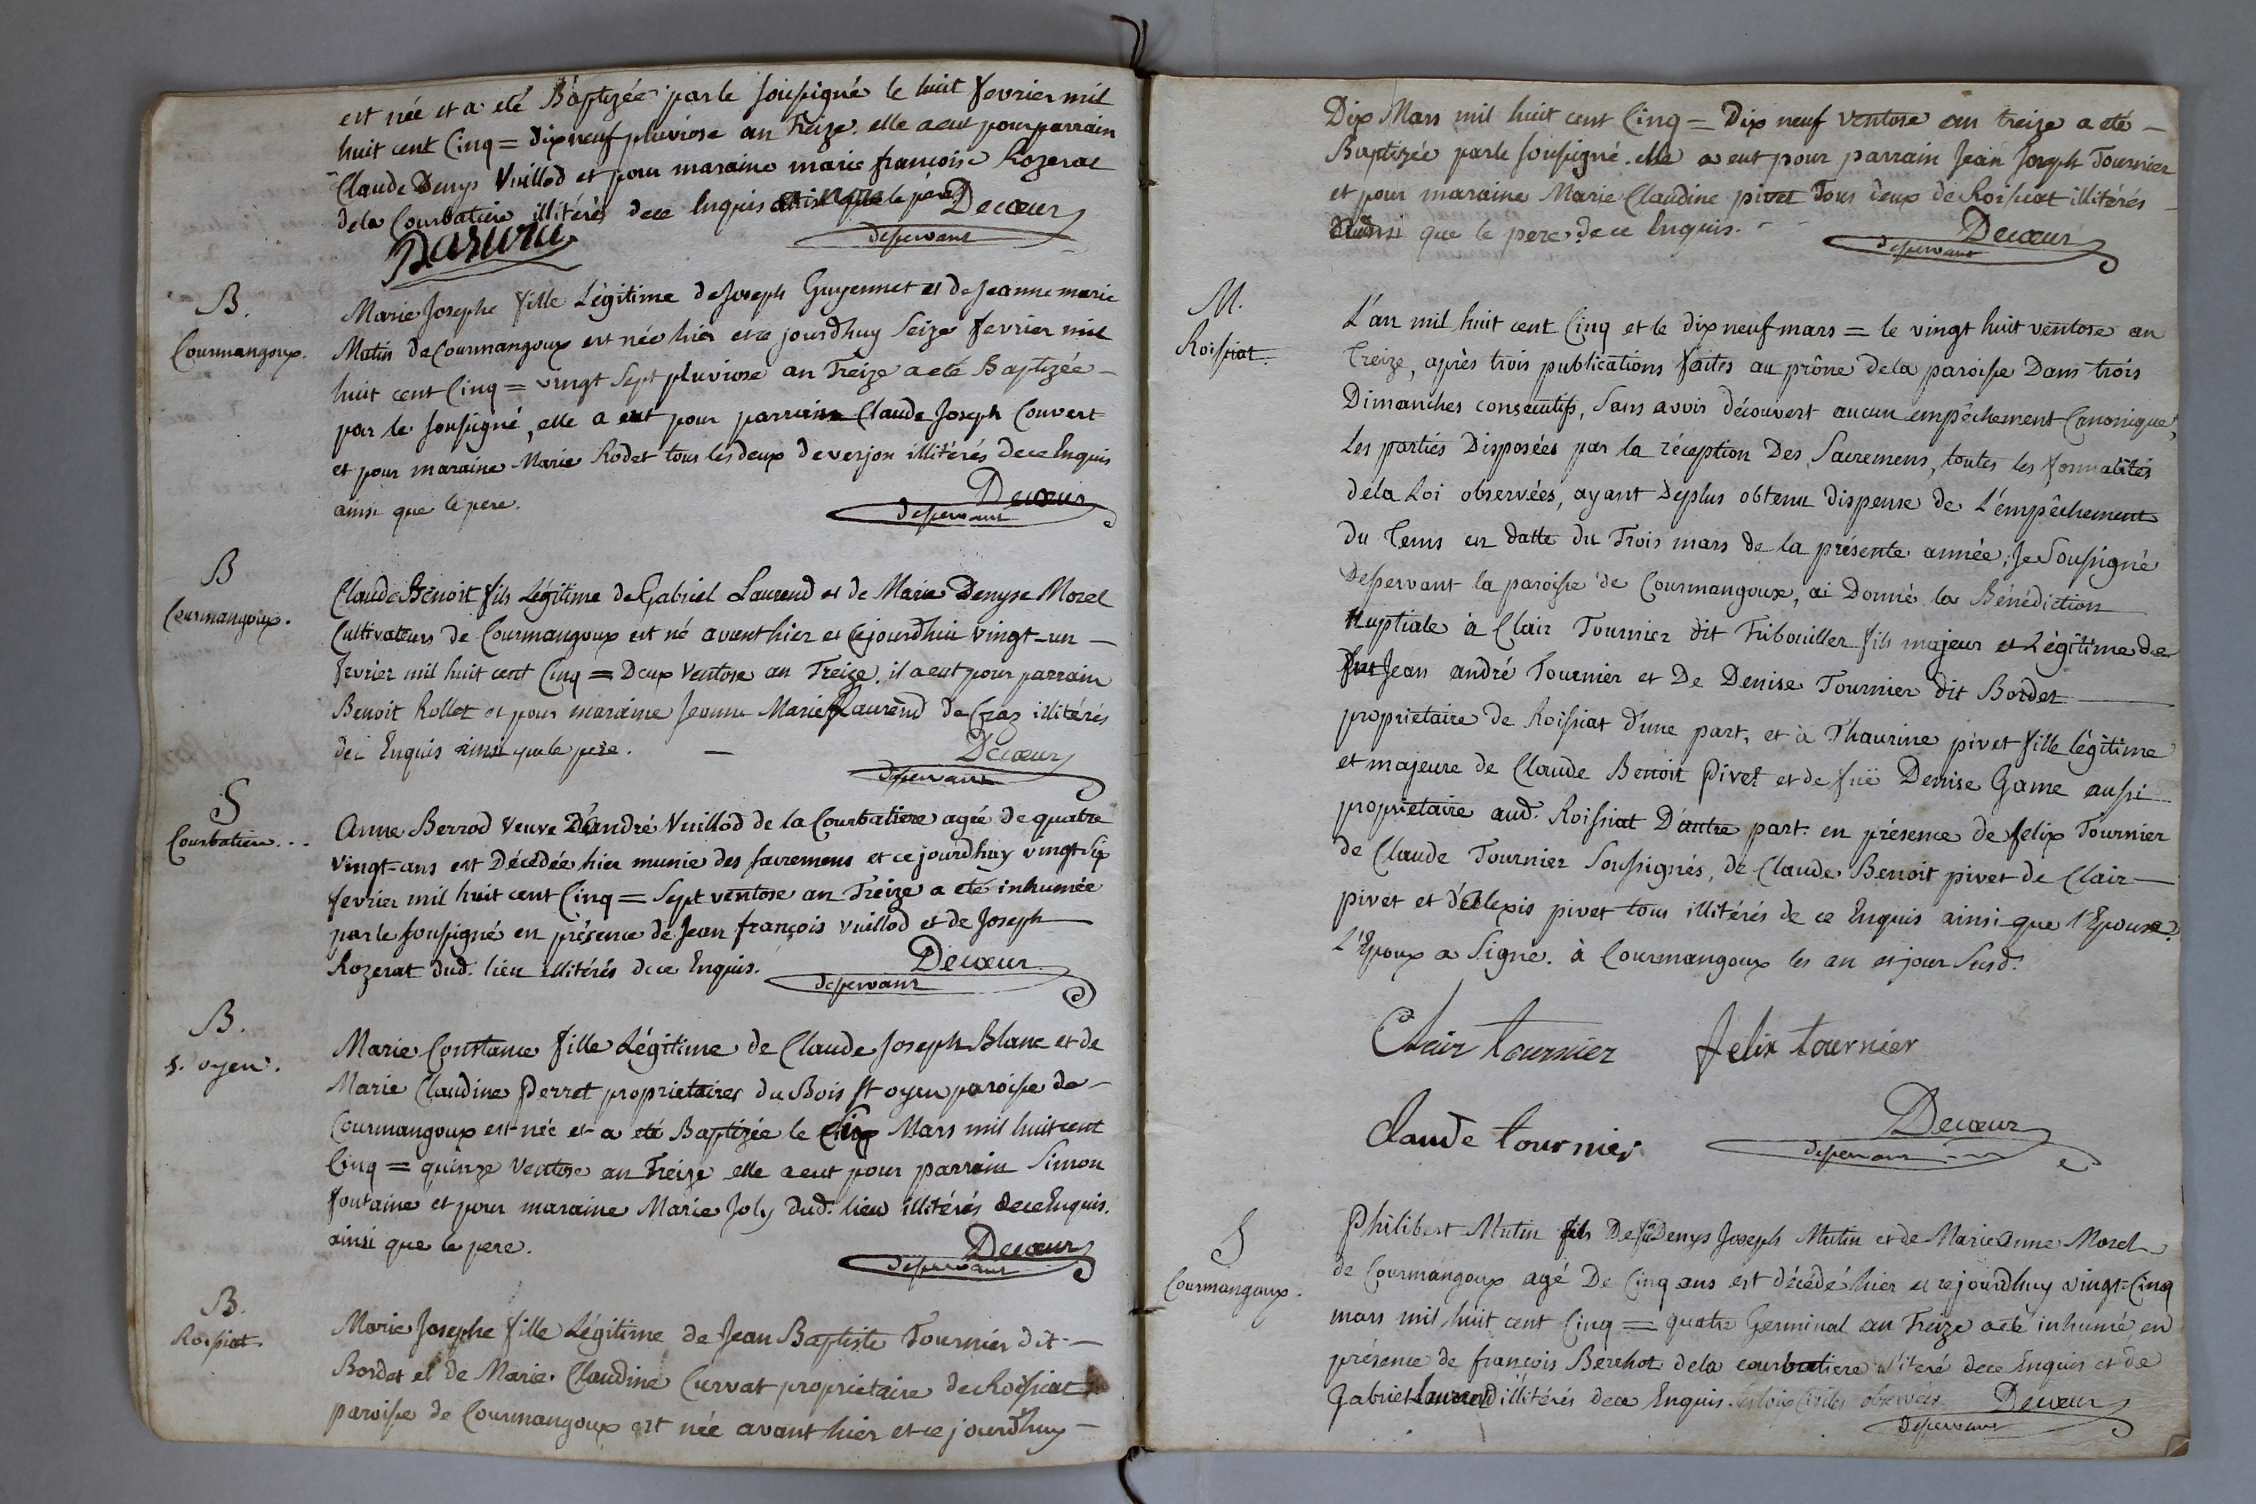 est née et a eté Baptizée par le soussigné le huit fevrier mil
huit cent Cinq = dixneuf pluviose an Treize. elle a eut pour parrain
Claude Denys Vuillod et pour maraine marie françoise Rozerat
dela Courbatiere illitérés dece Enquis ainsi que le père. Decœur
desservant
B.
Courmangoux.
Marie Josephe fille Légitime de Joseph Guyennet et de Jeanne marie
Mutin de Courmangoux est née hier et ce jourdhuy Seize fevrier mil
huit cent Cinq = vingt Sept pluviose an Treize a eté Baptizée –
par le soussigné, elle a eut pour parrain Claude Joseph Convert
et pour maraine Marie Rodet tous les deux de verjon illitérés dece Enquis
ainsi que le pere. Decœur
desservant
B
Courmangoux.
Claude Benoit fils Légitime de Gabriel Laurend et de Marie Denyse Morel
Cultivateurs de Courmangoux est né avant hier et Cejourdhui vingt-un –
fevrier mil huit cent Cinq = Deux Ventose an Treize. il a eut pour parrain
Benoit Rollet et pour maraine Jeanne Marie Laurend de Cras illitérés
de Enquis ainsi que le pere. – Decœur
desservant
S
Courbatiere...
Anne Berrod Veuve D'andré Vuillod de la Courbatiere agée de quatre
vingt-ans est Décédée hier munie des sacremens et ce jourdhuy vingt Six
fevrier mil huit cent Cinq = Sept ventose an Treize a eté inhumée
par le soussigné en présence de Jean françois vuillod et de Joseph
Rozerat dud. lieu illitérés dece Enquis. Decœur
desservant
B.
S. oyen.
Marie Constance fille Légitime de Claude Joseph Blanc et de
Marie Claudine Perret proprietaires du Bois St oyen paroisse de –
Courmangoux est née et a eté Baptizée le Six Mars mil huit cent
Cinq = quinze Ventose an Treize elle a eut pour parrain Simon
fontaine et pour maraine Marie Joly dud. lieu illitérés dece Enquis.
ainsi que le pere. Decœur
desservant
B.
Roissiat.
Marie Josephe fille Légitime de Jean Baptiste Tournier dit –
Bordet et de Marie Claudine Curvat proprietaire de Roissiat
paroisse de Courmangoux est née avant hier et ce jourdhuy –
Dix Mars mil huit cent Cinq = Dix neuf Ventose an treize a eté –
Baptizée par le soussigné. elle a eut pour parrain Jean Joseph Tournier
et pour maraine Marie Claudine pivet Tous deux de Roissiat illitérés –
Ainsi que le pere dece Enquis. – Decœur
desservant
M.
Roissiat.
L'an mil huit cent Cinq et le dix neuf mars = le vingt huit ventose an
Treize, après trois publications faites au prône dela paroisse Dans trois
Dimanches consecutifs, Sans avoir découvert aucun empêchement Canonique,
Les parties Disposées par la réception Des Sacremens, toutes les formalités
dela Loi observées, ayant Deplus obtenu dispense de L'empêchement
Du Tems en datte du Trois mars de la présente année, Je Soussigné
Desservant la paroisse de Courmangoux, ai Donné la Bénédiction
Nuptiale à Clair Tournier dit Tribouiller fils majeur et Légitime de
fut Jean andré Tournier et De Denise Tournier dit Bordet
proprietaire de Roissiat d'une part, et à Thaurine pivet fille légitime
et majeure de Claude Benoit Pivet et de fuë Denise Game aussi
proprietaire aud. Roissiat D'autre part. en présence de felix Tournier
de Claude Tournier Soussignés, de Claude Benoit pivet de Clair –
pivet et d'Alexis pivet tous illitérés de ce Enquis ainsi que l'Epouse.
L'Epoux a Signé. à Courmangoux les an et jour Susd.
Clair tournier felix tournier
Claude tournier Decœur
desservant
S
Courmangoux.
Philibert Mutin fils De fû Denys Joseph Mutin et de Marie Anne Morel
de Courmangoux agé De Cinq ans est décédé hier et ce jourdhuy vingt-Cinq
mars mil huit cent Cinq = quatre Germinal an Treize a eté inhumé en
présence de françois Berchot dela courbatiere illiteré dece Enquis et de
Gabriel Laurend illitérés dece Enquis. Les loix civiles observées Decœur
desservant